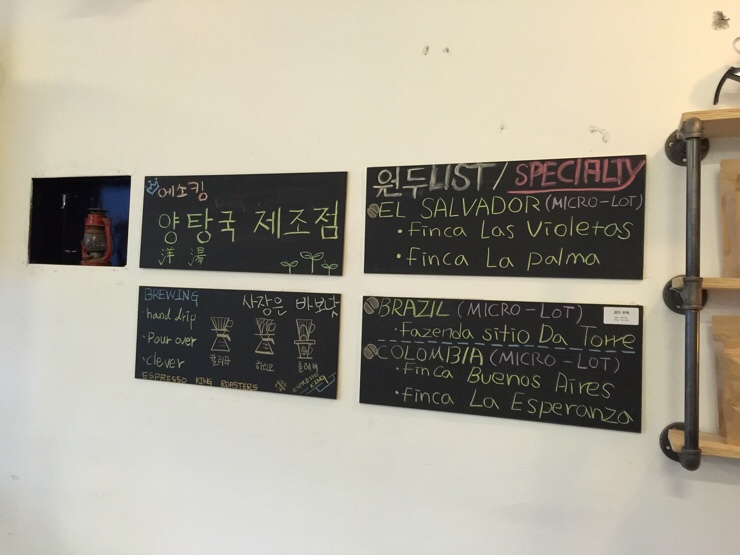 에쏘킹
양탕국 제조점
洋 湯
BREWING
사장은 바보닷
· hand drip
· Pour over
· Clever
칼리타
하리오
클레버
ESPRESSO KING ROASTERS
ESPRESSO KING
원두LIST / SPECIALTY
EL SALVADOR (MICRO-LOT)
· Finca Las Violetas
· Finca La palma
BRAZIL (MICRO-LOT)
· Fazenda sitio Da Torre
COLOMBIA (MICRO-LOT)
· Finca Buenos Aires
· Finca La Esperanza